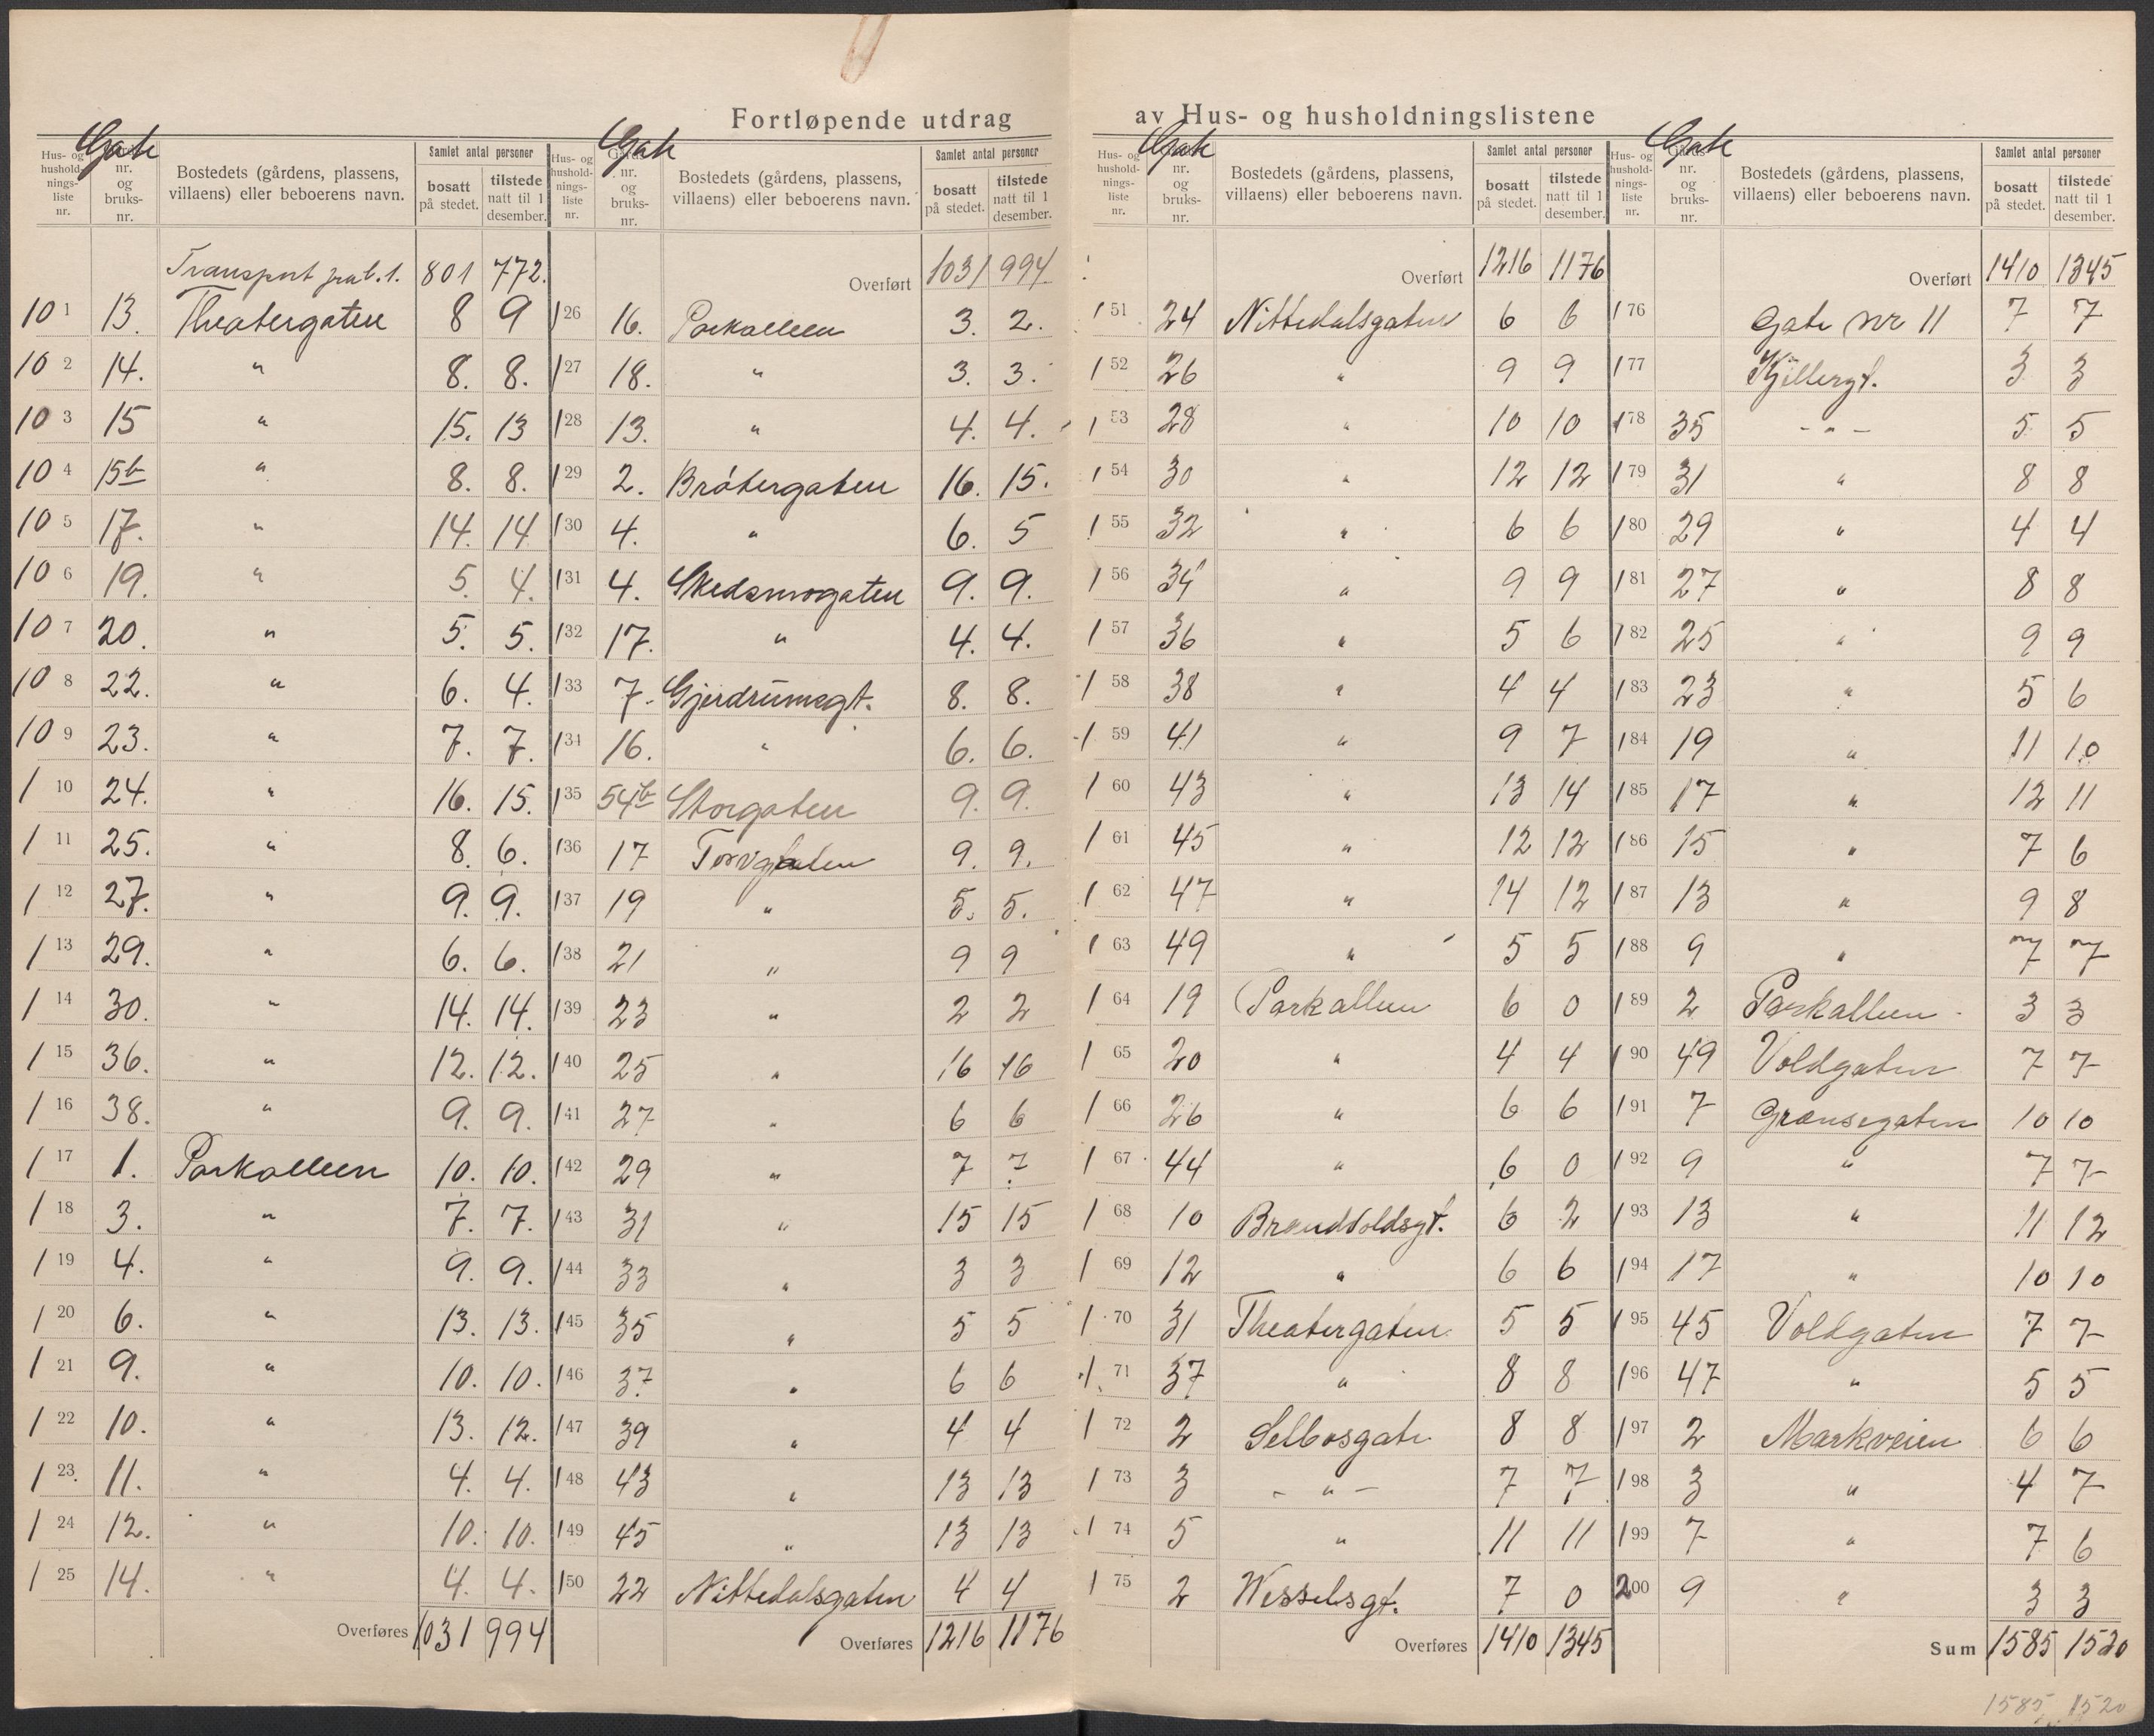 Fortløpende utdrag av Hus- og husholdningslistene
Hus- og hushold-nings-liste nr. Gate nr. og bruks-nr. Bostedets (gårdens, plassens, villaens) eller beboerens navn. Samlet antal personer bosatt på stedet. tilstede natt til 1 desember.
Transport 801 772.
101 13. Theatergaten 8 9
102 14. " 8. 8.
103 15 " 15. 13
104 15b " 8. 8.
105 17. " 14. 14
106 19. " 5. 4.
107 20. " 5. 5.
108 22. " 6. 4.
109 23. " 7. 7.
110 24. " 16. 15.
111 25. " 8. 6.
112 27. " 9. 9.
113 29. " 6. 6.
114 30. " 14. 14.
115 36. " 12. 12.
116 38. " 9. 9.
117 1. Parkalleen 10. 10.
118 3. " 7. 7.
119 4. " 9. 9.
120 6. " 13. 13.
121 9. " 10. 10.
122 10. " 13. 12.
123. 11. " 4. 4.
124 12. " 10. 10.
125 14. " 4. 4.
Overføres 1031 994
Hus- og hushold-nings-liste nr. Gate nr. og bruks-nr. Bostedets (gårdens, plassens, villaens) eller beboerens navn. Samlet antal personer bosatt på stedet. tilstede natt til 1 desember.
Overført 1031 994.
126 16. Parkalleen 3. 2.
127 18. " 3. 3.
128 13. " 4. 4.
129 2. Bråtergaten 16. 15.
130 4. " 6. 5
131 4. Skedsmogaten 9. 9.
132 17. " 4. 4.
133 7. Gjerdrumsgt. 8. 8.
134 16. " 6. 6.
135 54b Storgaten 9. 9.
136 17 Torvgaten 9. 9.
137 19 " 5. 5.
138 21 " 9 9
139 23 " 2 2
140 25 " 16 16
141 27 " 6 6
142 29 " 7 7
143 31 " 15 15
144 33 " 3 3
145 35 " 5 5
146 37 " 6 6
147 39 " 4 4
148 43 " 13 13
149 45 " 13 13
150 22 Nittedalsgaten 4 4
Overføres 1216 1176
Hus- og hushold-nings-liste nr. Gate nr. og bruks-nr. Bostedets (gårdens, plassens, villaens) eller beboerens navn. Samlet antal personer bosatt på stedet. tilstede natt til 1 desember.
Overført 1216 1176
151 24 Nittedalsgaten 6 6
152 26 " 9 9
153 28 " 10 10
154 30 " 12 12
155 32 " 6 6
156 34 " 9 9
157 36 " 5 6
158 38 " 4 4
159 41 " 9 7
160 43 " 13 14
161 45 " 12 12
162 47 " 14 12
163 49 " 5 5
164 19 Parkalleen 6 0
165 20 " 4 4
166 26 " 6 6
167 44 " 6 0
168 10 Brandvoldsgt. 6 2
169 12 " 6 6
170 31 Theatergaten 5 5
171 37 " 8 8
172 2 Selbosgate 8 8
173 3 - " - 7 7
174 5 " 11 11
175 2 Wesselsgt. 7 0
Overføres 1410 1345
Hus- og hushold-nings-liste nr. Gate nr. og bruks-nr. Bostedets (gårdens, plassens, villaens) eller beboerens navn. Samlet antal personer bosatt på stedet. tilstede natt til 1 desember.
Overført 1410 1345
176 Gate nr 11 7 7
177 Kjillergt. 3 3
178 35 - " - 5 5
179 31 " 8 8
180 29 " 4 4
181 27 " 8 8
182 25 " 9 9
183 23 " 5 6
184 19 " 11 10
185 17 " 12 11
186 15 " 7 6
187 13 " 9 8
188 9 " 7 7
189 2 Parkalleen 3 3
190 49 Voldgaten 7 7
191 7 Grænsegaten 10 10
192 9 " 7 7
193 13 " 11 12
194 17 " 10 10
195 45 Voldgaten 7 7
196 47 " 5 5
197 2 Markveien 6 6
198 3 " 4 7
199 7 " 7 6
200 9 " 3 3
Sum 1585 1520
1585 1520